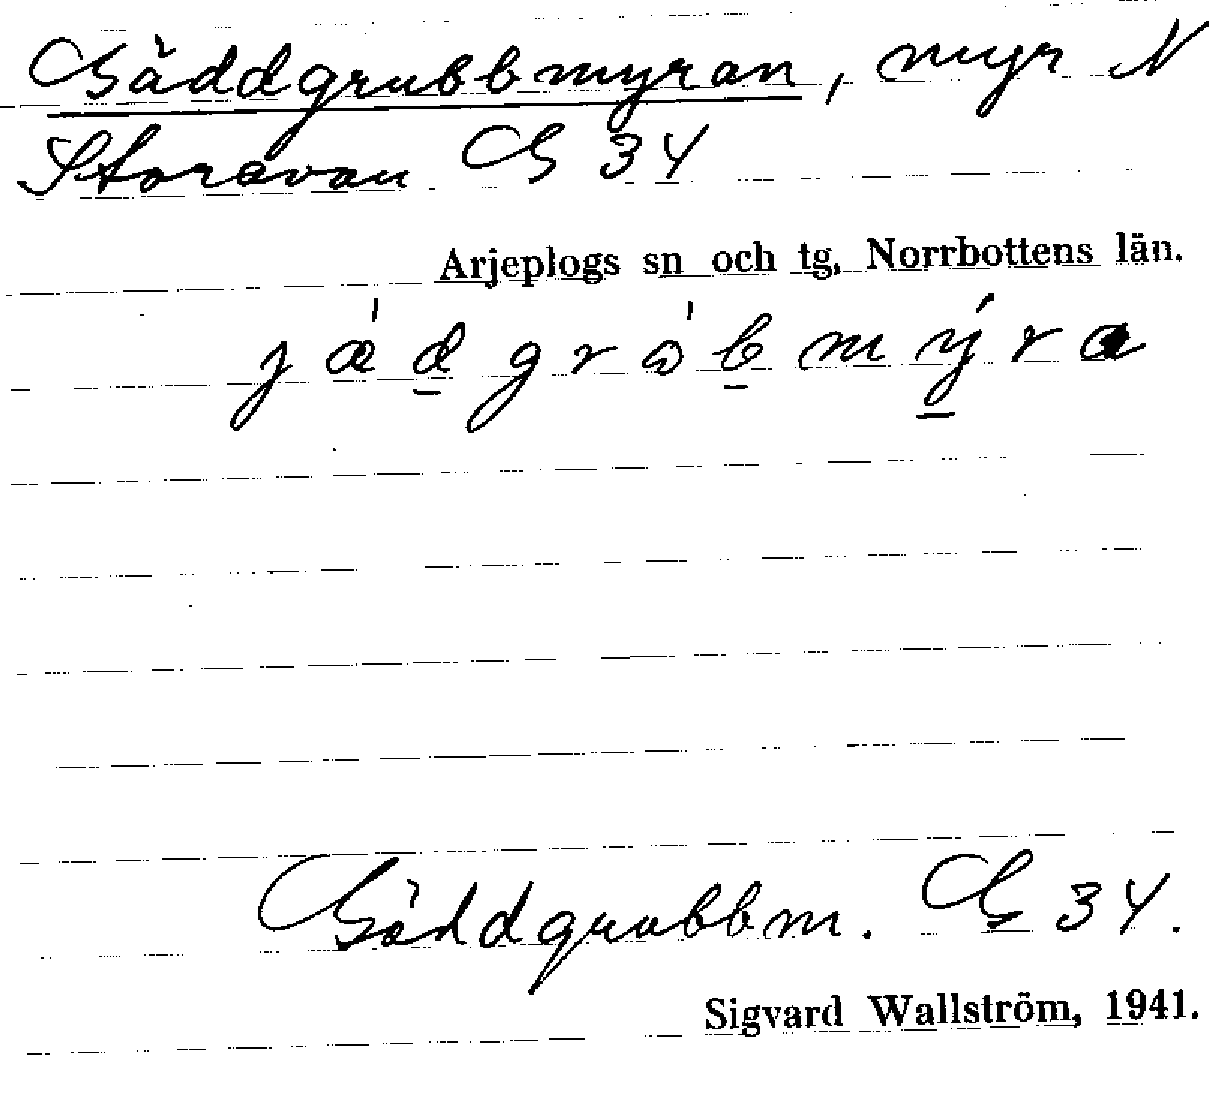 Gäddgrubbmyran, myr N
Storavan G 34
Arjeplogs sn och tg, Norrbottens län.
j ǽ d g r ó b m ý r a
Gäddgrubbm. G 34.
Sigvard Wallström, 1941.